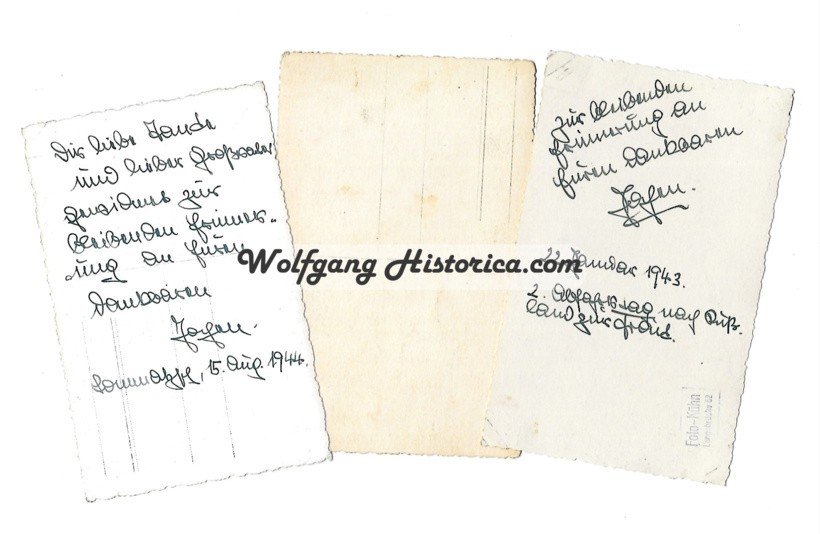 Dir liebe Tante
und lieber Großvater
gewidmet zur
bleibenden Erinner-
ung an Euren
dankbaren
Lommatzsch, 15. Aug. 1944.
Wolfgang Historica.com
zur bleibenden
Erinnerung an
Euren dankbaren
22. Januar 1943.
2. Abfahrtstag nach Ruß-
land zur Front.
Foto-Kühn